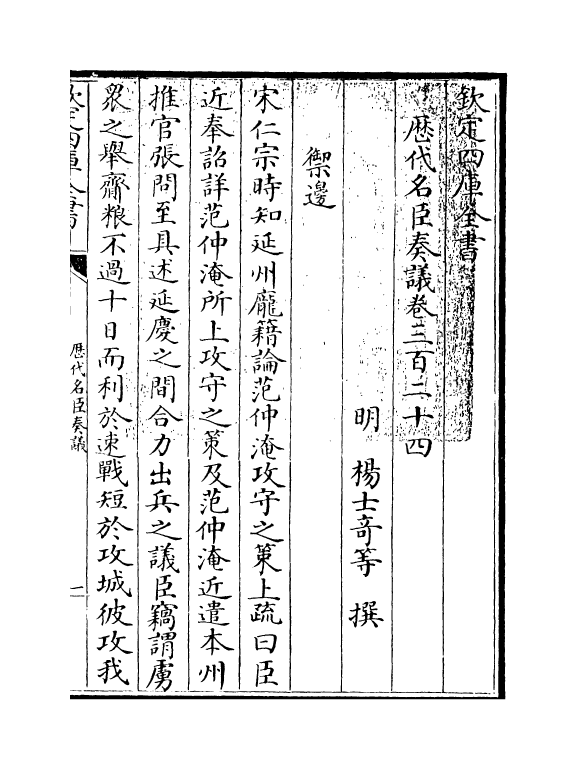 欽定四庫全書
歴代名臣奏議卷三百二十四
明　楊士奇等　撰
禦邊
宋仁宗時知延州龐籍論范仲淹攻守之策上疏曰臣
近奉詔詳范仲淹所上攻守之策及范仲淹近遣本州
推官張問至具述延慶之間合力出兵之議臣竊謂虜
衆之舉齎粮不過十日而利於速戰短於攻城彼攻我
欽定四庫全書
歴代名臣奏議
一